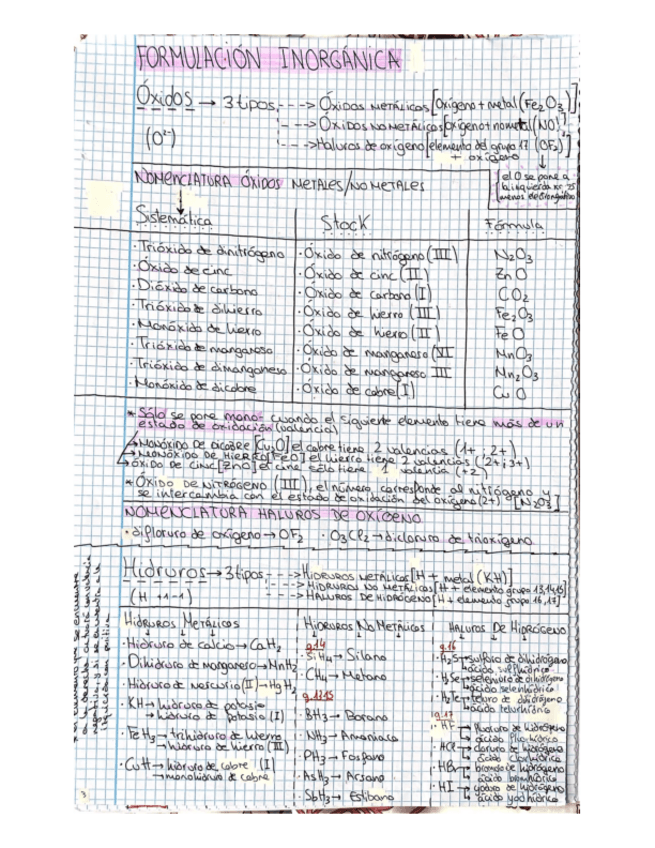 FORMULACIÓN INORGÁNICA
Óxidos → 3 tipos ---> ÓXIDOS METÁLICOS [Oxígeno + metal (Fe2O3)]
---> ÓXIDOS NO METÁLICOS [Oxígeno + no metal (NO)]
(O²⁻) ---> Haluros de oxígeno [elemento del grupo 17 (OF2)]
+ oxígeno
el O se pone a
la izquierda xq es
menos electronegativo
NOMENCLATURA ÓXIDOS METALES/NO METALES
Sistemática Stock Fórmula
· Trióxido de dinitrógeno · Óxido de nitrógeno (III) N2O3
· Óxido de cinc · Óxido de cinc (II) ZnO
· Dióxido de carbono · Óxido de carbono (I) CO2
· Trióxido de dihierro · Óxido de hierro (III) Fe2O3
· Monóxido de hierro · Óxido de hierro (II) FeO
· Trióxido de manganeso · Óxido de manganeso (VI MnO3
· Trióxido de dimanganeso · Óxido de manganeso III Mn2O3
· Monóxido de dicobre · Óxido de cobre (I) CuO
* Sólo se pone mono- cuando el siguiente elemento tiene más de un
estado de oxidación (valencia)
→ MONÓXIDO DE DICOBRE [Cu2O] el cobre tiene 2 valencias (1+, 2+)
→ MONÓXIDO DE HIERRO [FeO] el hierro tiene 2 valencias (2+, 3+)
→ ÓXIDO DE CINC [ZnO] el cinc sólo tiene 1 valencia (+2)
* ÓXIDO DE NITRÓGENO (III), el número corresponde al nitrógeno y
se intercambia con el estado de oxidación del oxígeno (2+) [N2O3]
NOMENCLATURA HALUROS DE OXÍGENO
· difloruro de oxígeno → OF2 · O3Cl2 → dicloruro de trioxígeno
Hidruros → 3 tipos ---> HIDRUROS METÁLICOS [H + metal (KH)]
---> HIDRUROS NO METÁLICOS [H + elemento grupo 13,14,15]
(H +1 -1) ---> HALUROS DE HIDRÓGENO [H + elemento grupo 16,17]
HIDRUROS METÁLICOS
· Hidruro de calcio → CaH2
· Dihidruro de manganeso → MnH2
· Hidruro de mercurio (II) → HgH2
· KH → hidruro de potasio
→ hidruro de potasio (I)
· FeH3 → trihidruro de hierro
→ hidruro de hierro (III)
· CuH → hidruro de cobre (I)
→ monohidruro de cobre
HIDRUROS NO METÁLICOS
g.14
· SiH4 → Silano
· CH4 → Metano
g.13 15
· BH3 → Borano
· NH3 → Amoniaco
· PH3 → Fosfano
· AsH3 → Arsano
· SbH3 → Estibano
HALUROS DE HIDRÓGENO
g.16
· H2S → sulfuro de dihidrógeno
→ ácido sulfhídrico
· H2Se → seleniuro de dihidrógeno
→ ácido selenhídrico
· H2Te → teluro de dihidrógeno
→ ácido telurhídrico
g.17
· HF → fluoruro de hidrógeno
→ ácido fluorhídrico
· HCl → cloruro de hidrógeno
→ ácido clorhídrico
· HBr → bromuro de hidrógeno
→ ácido bromhídrico
· HI → yoduro de hidrógeno
→ ácido yodhídrico
elemento que se encuentra
a la derecha actuará con valencia
negativa, y si se encuentra a la
izquierda con positiva